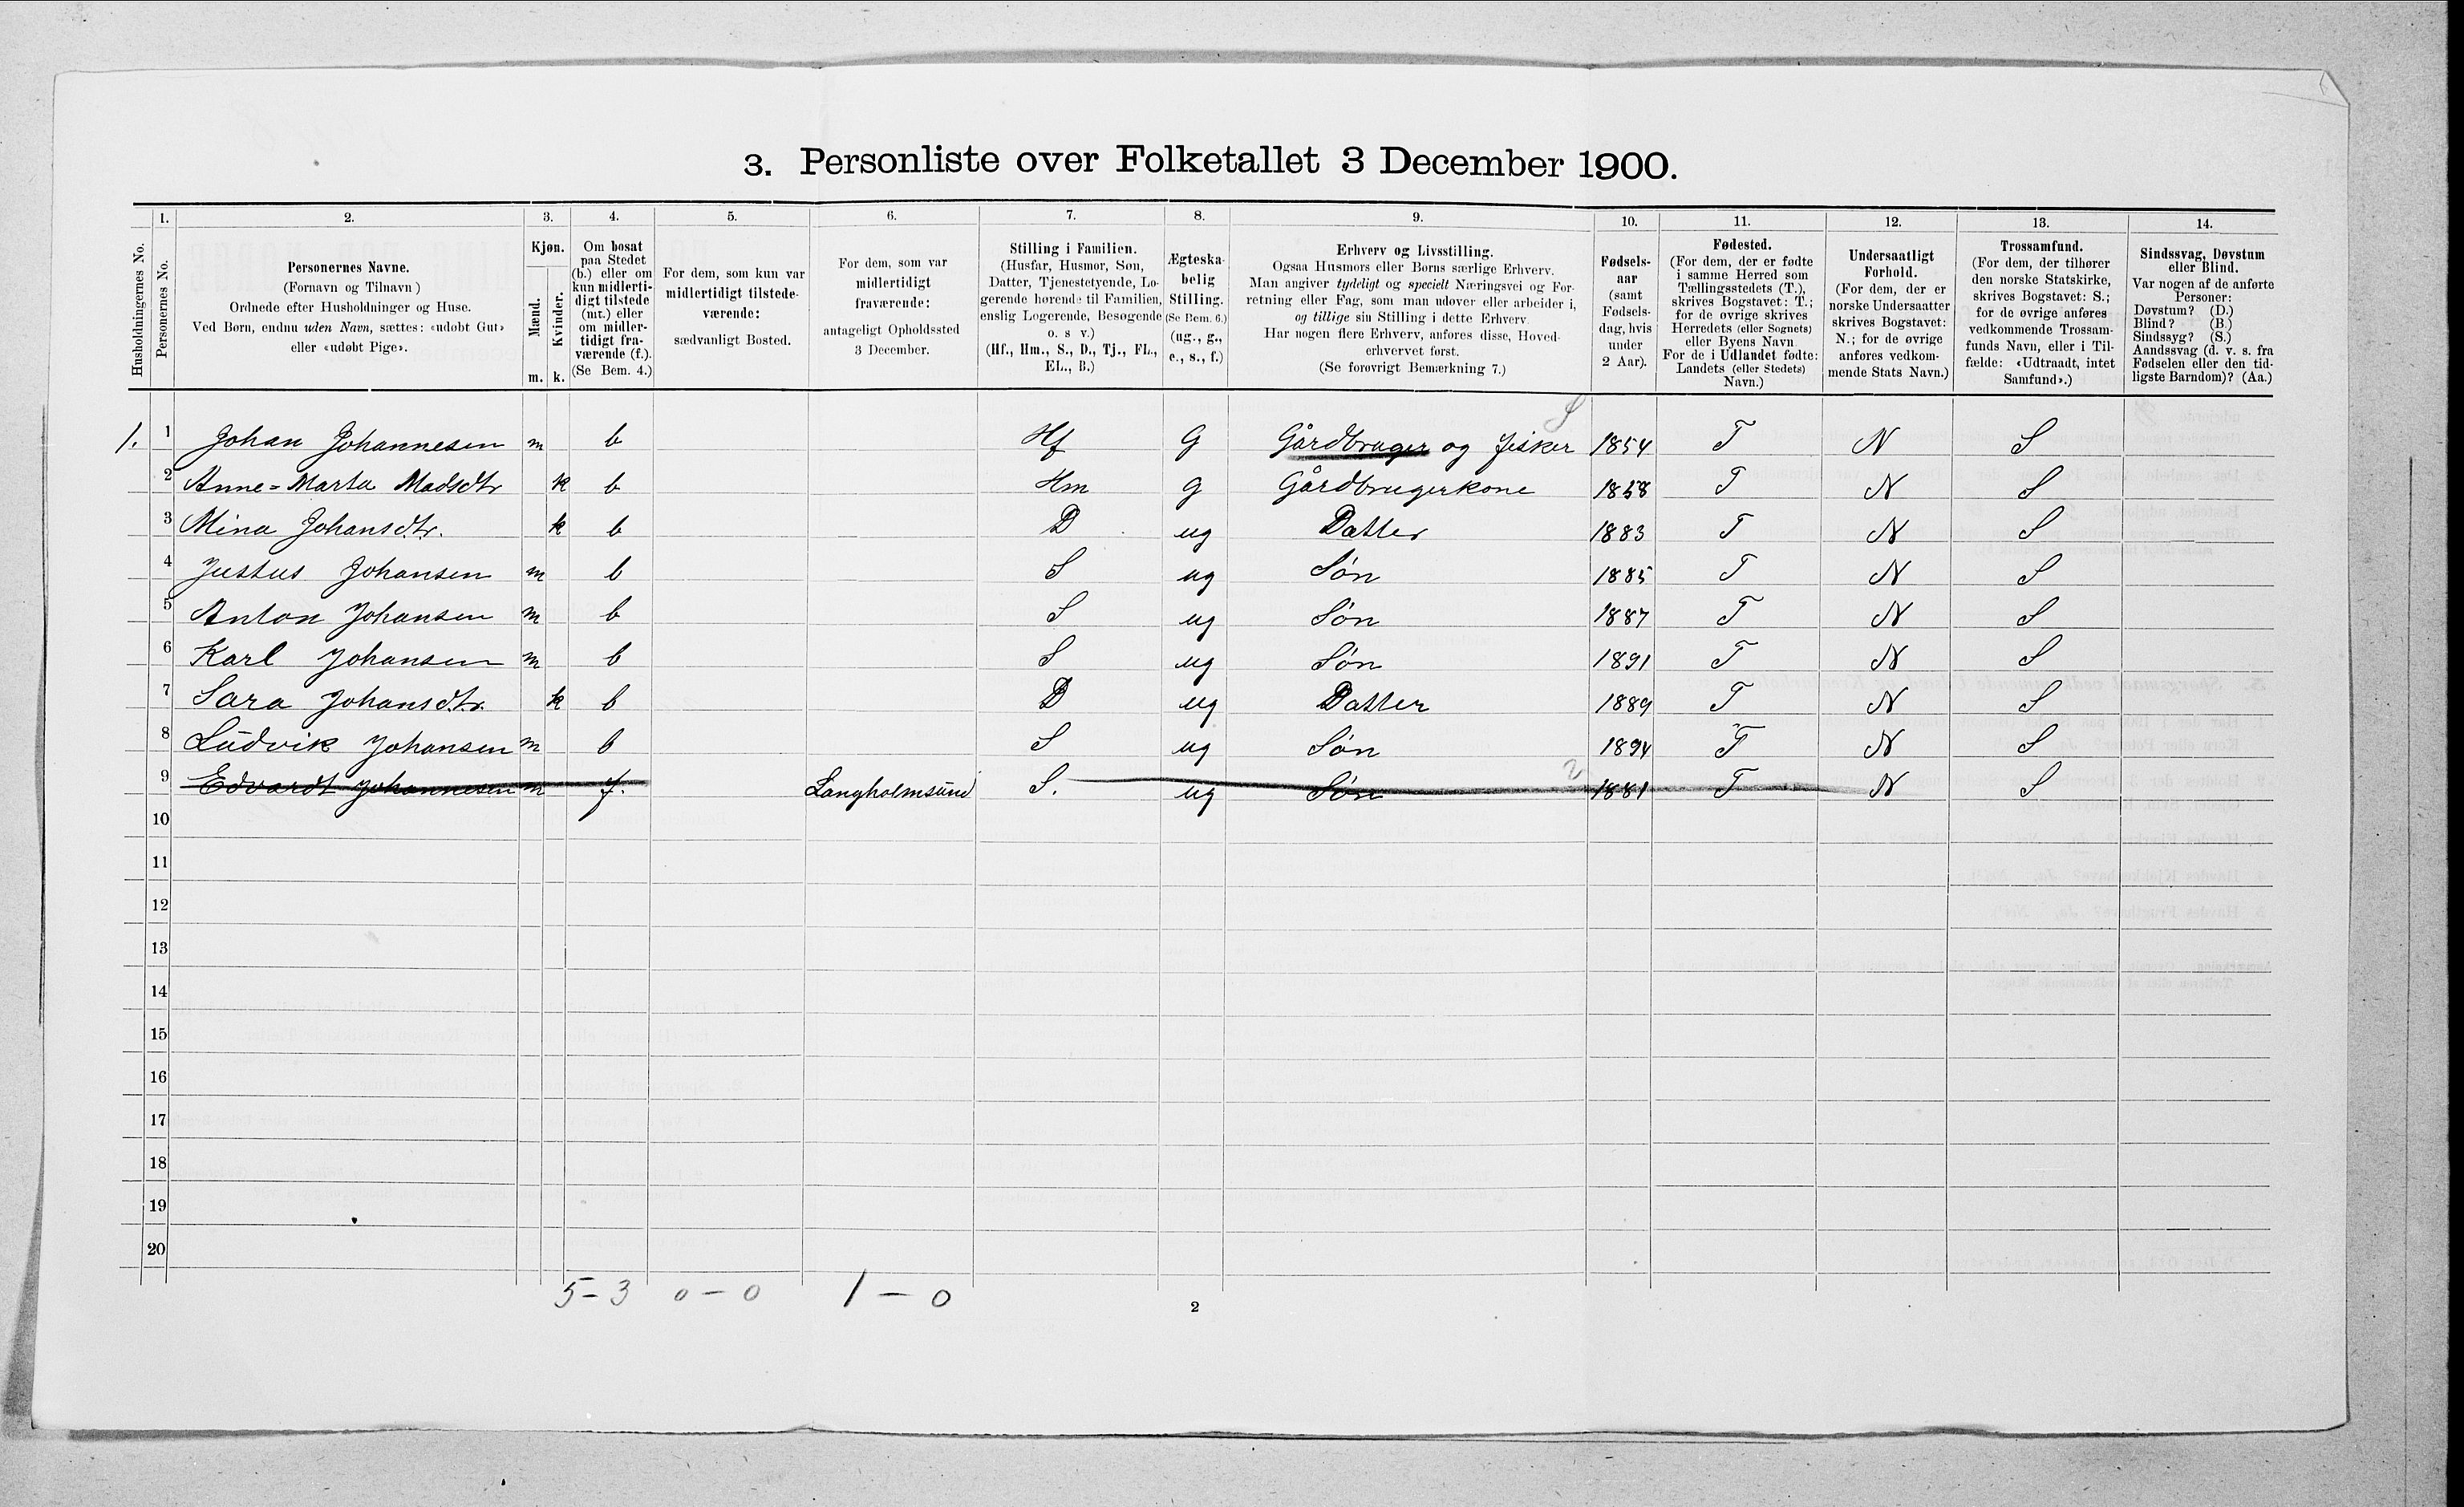 3. Personliste over Folketallet 3 December 1900.
1. 2. 3. 4. 5. 6. 7. 8. 9. 10. 11. 12. 13. 14.
Husholdningernes No.
Personernes No.
Personernes Navne.
(Fornavn og Tilnavn)
Ordnede efter Husholdninger og Huse.
Ved Børn, endnu uden Navn, sættes: «udøbt Gut»
eller «udøbt Pige».
Kjøn.
Mænd.
Kvinder.
m. k.
Om bosat
paa Stedet
(b.) eller om
kun midlerti-
digt tilstede
(mt.) eller
om midler-
tidigt fra-
værende (f.).
(Se Bem. 4.)
For dem, som kun var
midlertidigt tilstede-
værende:
sædvanligt Bosted.
For dem, som var
midlertidigt
fraværende:
antageligt Opholdssted
3 December.
Stilling i Familien.
(Husfar, Husmor, Søn,
Datter, Tjenestetyende, Lo-
gerende hørende til Familien,
enslig Logerende, Besøgende
o. s v.)
(Hf., Hm., S., D., Tj., FL.,
EL., B.)
Ægteska-
belig
Stilling.
(Se Bem. 6.)
(ug., g.,
e., s., f.)
Erhverv og Livsstilling.
Ogsaa Husmors eller Børns særlige Erhverv.
Man angiver tydeligt og specielt Næringsvei og For-
retning eller Fag, som man udøver eller arbeider i,
og tillige sin Stilling i dette Erhverv.
Har nogen flere Erhverv, anføres disse, Hoved-
erhvervet først.
(Se forøvrigt Bemærkning 7.)
Fødsels-
aar
(samt
Fødsels-
dag, hvis
under
2 Aar).
Fødested.
(For dem, der er fødte
i samme Herred som
Tællingsstedets (T.),
skrives Bogstavet: T.;
for de øvrige skrives
Herredets (eller Sognets)
eller Byens Navn
For de i Udlandet fødte:
Landets (eller Stedets)
Navn.)
Undersaatligt
Forhold.
(For dem, der er
norske Undersaatter
skrives Bogstavet:
N.; for de øvrige
anføres vedkom-
mende Stats Navn.)
Trossamfund.
(For dem, der tilhører
den norske Statskirke,
skrives Bogstavet: S.;
for de øvrige anføres
vedkommende Trossam-
funds Navn, eller i Til-
fælde: «Udtraadt, intet
Samfund».)
Sindssvag, Døvstum
eller Blind.
Var nogen af de anførte
Personer:
Døvstum? (D.)
Blind? (B.)
Sindssyg? (S.)
Aandssvag (d. v. s. fra
Fødselen eller den tid-
ligste Barndom)? (Aa.)
S
1. 1 Johan Johannesen m b Hf G Gårdbruger og fisker 1854 T N S
2 Anne=Marta Madsdtr k b Hm g Gårdbrugerkone 1858 T N S
3 Mina Johansdtr. k b D ug Datter 1883 T N S
4 Justus Johansen m b S ug Søn 1885 T N S
5 Anton Johansen m b S ug Søn 1887 T N S
6 Karl Johansen m b S ug Søn 1891 T N S
7 Sara Johansdtr. k b D ug Datter 1889 T N S
8 Ludvik Johansen m b S ug Søn 1894 T N S
9 Edvardt Johannesen m f. Langholmsund S. ug Søn 2 1881 T N S
10
11
12
13
14
15
16
17
18
19
20
5-3 0-0 1-0
2